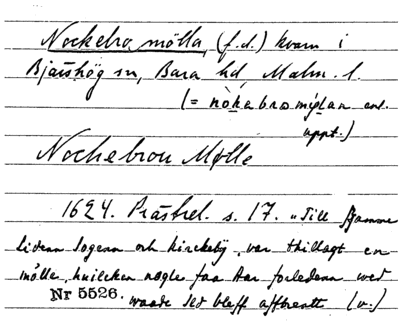 Nockebro mölla, (f.d.) kvarn i
Bjärshög sn, Bara hd, Malm. l.
(= nòkabromö̀lan enl.
uppt.)
Nochebrou Mølle
1624. Prästrel. s. 17. "Till
Sogenn och kirckeby, var thillagt en
mölle, huilcken nogle faa Aar forledenn wed
Nr 5526. waade Ild bleff affbrentt (v.)